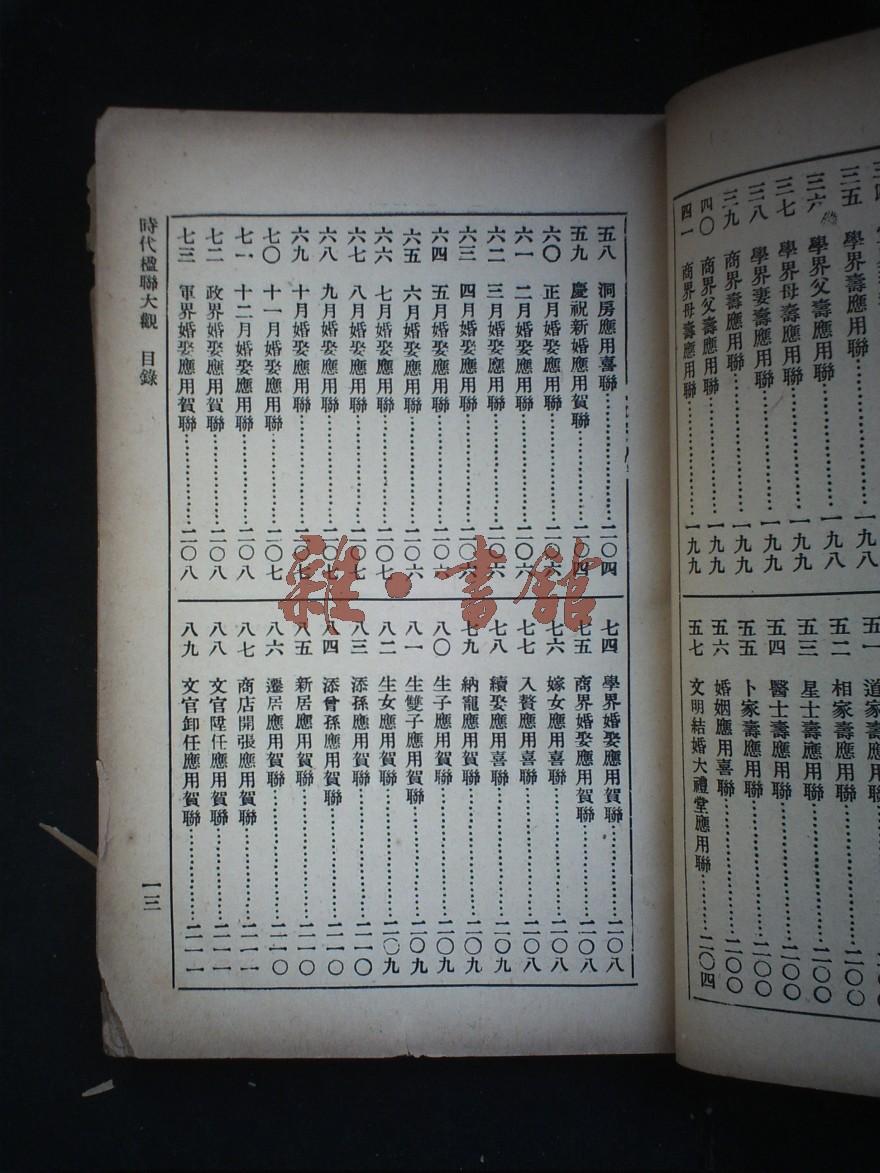 三五 學界壽應用聯……一九八
三六 學界父壽應用聯……一九八
三七 學界母壽應用聯……一九九
三八 學界妻壽應用聯……一九九
三九 商界壽應用聯……一九九
四〇 商界父壽應用聯……一九九
四一 商界母壽應用聯……一九九
五一 道家壽應用聯
五二 相家壽應用聯……二〇〇
五三 星士壽應用聯……二〇〇
五四 醫士壽應用聯……二〇〇
五五 卜家壽應用聯……二〇〇
五六 婚姻應用喜聯……二〇〇
五七 文明結婚大禮堂應用聯……二〇四
五八 洞房應用喜聯……二〇四
五九 慶祝新婚應用賀聯……二〇四
六〇 正月婚娶應用聯……二〇六
六一 二月婚娶應用聯……二〇六
六二 三月婚娶應用聯……二〇六
六三 四月婚娶應用聯……二〇六
六四 五月婚娶應用聯……二〇六
六五 六月婚娶應用聯……二〇六
六六 七月婚娶應用聯……二〇七
六七 八月婚娶應用聯……二〇七
六八 九月婚娶應用聯……二〇七
六九 十月婚娶應用聯……二〇七
七〇 十一月婚娶應用聯……二〇七
七一 十二月婚娶應用聯……二〇八
七二 政界婚娶應用賀聯……二〇八
七三 軍界婚娶應用賀聯……二〇八
七四 學界婚娶應用賀聯……二〇八
七五 商界婚娶應用賀聯……二〇八
七六 嫁女應用賀聯……二〇八
七七 入贅應用喜聯……二〇八
七八 續娶應用喜聯……二〇九
七九 納寵應用賀聯……二〇九
八〇 生子應用賀聯……二〇九
八一 生雙子應用賀聯……二〇九
八二 生女應用賀聯……二〇九
八三 添孫應用賀聯……二一〇
八四 添曾孫應用賀聯……二一〇
八五 新居應用賀聯……二一〇
八六 遷居應用賀聯……二一〇
八七 商店開張應用賀聯……二一一
八八 文官陞任應用賀聯……二一一
八九 文官卸任應用賀聯……二一一
時代楹聯大觀 目錄
一三
雜·書館